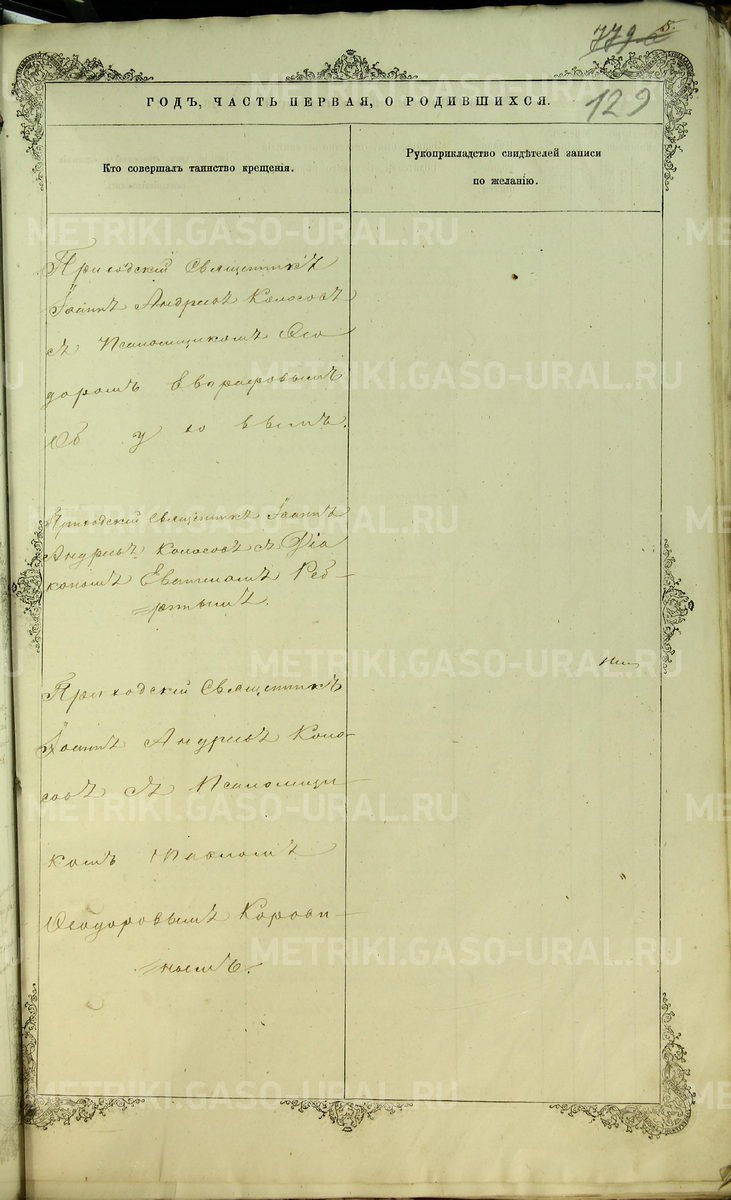 5.
129
ГОДЪ, ЧАСТЬ ПЕРВАЯ, О РОДИВШИХСЯ.
Кто совершалъ таинство крещенія.
Рукоприкладство свидѣтелей записи
по желанію.
Приходскій Священникъ
Іоаннъ Андреевъ Колосовъ
съ Псаломщикомъ Ѳео
доромъ
Приходскій Священникъ Іоаннъ
Андреевъ Колосовъ съ Діа
кономъ
Приходскій Священникъ
Іоаннъ Андреевъ Коло-
совъ съ Псаломщи-
комъ Павломъ
Ѳеодоровымъ Корови-
нымъ.
METRIKI.GASO-URAL.RU